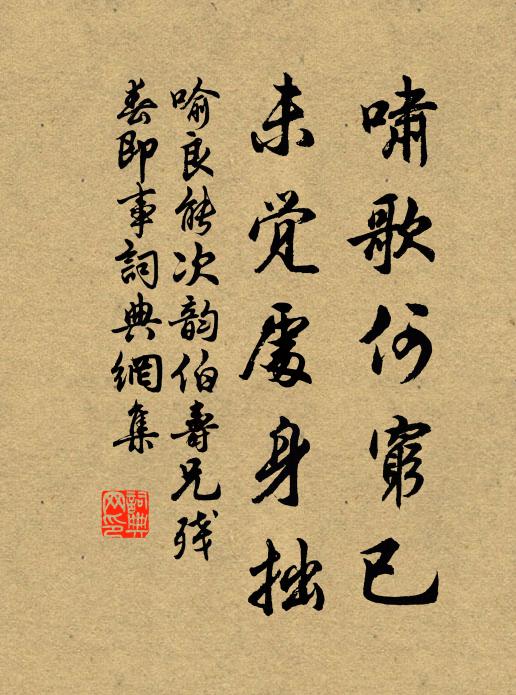 啸歌何穷已
未觉处身拙
喻良能次韵伯寿兄残
春即事词典网集
词典网印